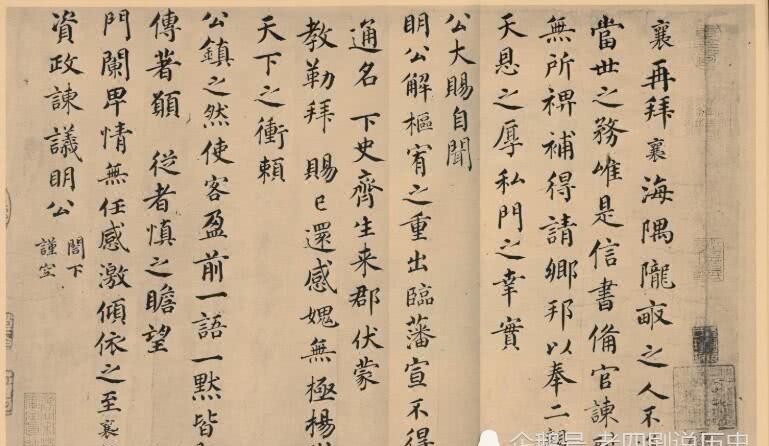 襄再拜襄海隅隴畝之人不
當世之務唯是信書備官諫
無所裨補得請鄉邦以奉二親
天恩之厚私門之幸實
公大賜自聞
明公解樞宥之重出臨藩宣不得
通名下史齊生来郡伏蒙
教勒拜賜已還感媿無極楊
天下之衝賴
公鎮之然使客盈前一語一默皆
傳著願 從者慎之瞻望
門闌卑情無任感激傾依之至襄
資政諫議明公 閤下
謹空
企鹅号 老四剧说历史